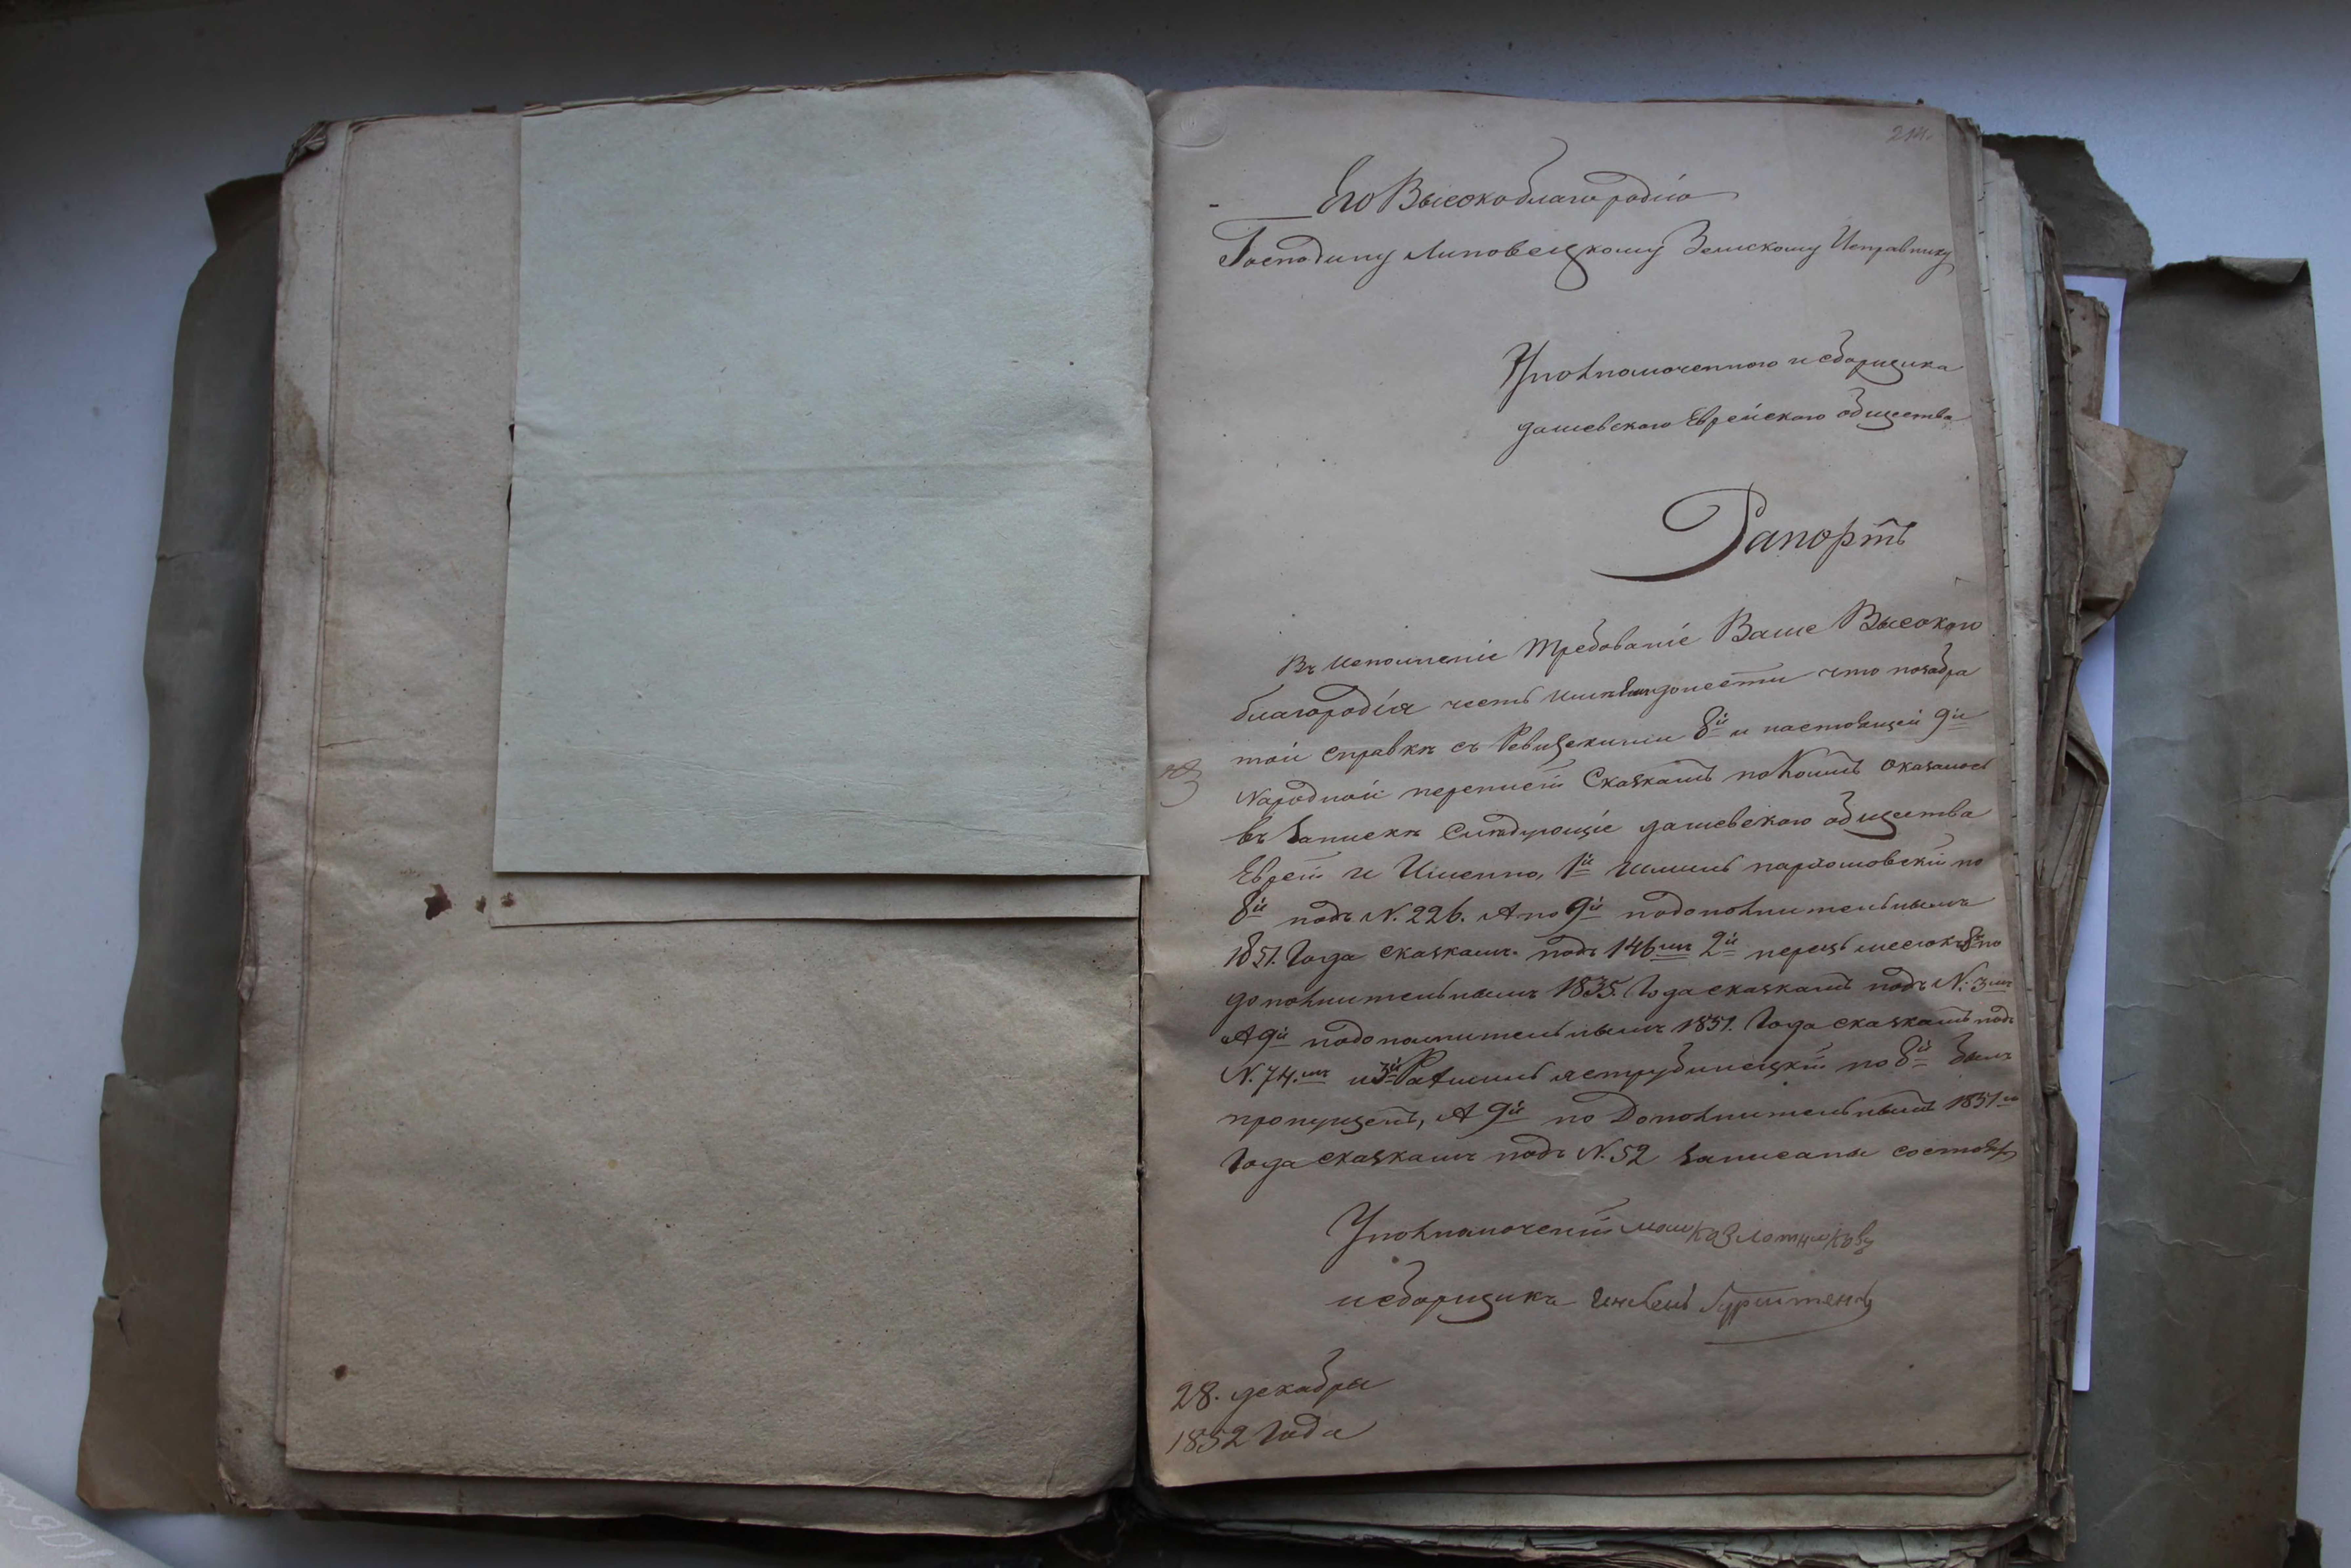 214.
Его Высокоблагородію
Господину Липовецкому Земскому Исправнику
Уполномоченного и сборщика
дашевского Еврейского общества
Рапортъ
Въ исполненіе требованіе Ваше Высоко
благородія честь имѣемъ донести что по забра
той справкѣ съ Ревизскими 8й и настоящей 9й
Народной переписи Сказкамъ по коимъ оказалось
въ запискѣ слѣдующіе дашевского общества
Еврей и Именно, 1й пархомовскій по
8й подъ N. 226. А по 9й подополнительнымъ
1851. Года сказкамъ подъ 146мъ 2й перецъ по
дополнительнымъ 1835. Года сказкамъ подъ N. 3мъ
А 9й подополнительнымъ 1851. Года сказкамъ подъ
N. 74.мъ и 3й яструбинецкій по 8й былъ
пропущенъ, А 9й по Дополнительнымъ 1851го
Года сказкамъ подъ N. 52 записаны состоятъ
Уполномоченій мошко злотниковъ
и сборщикъ
28. декабры
1852 Года